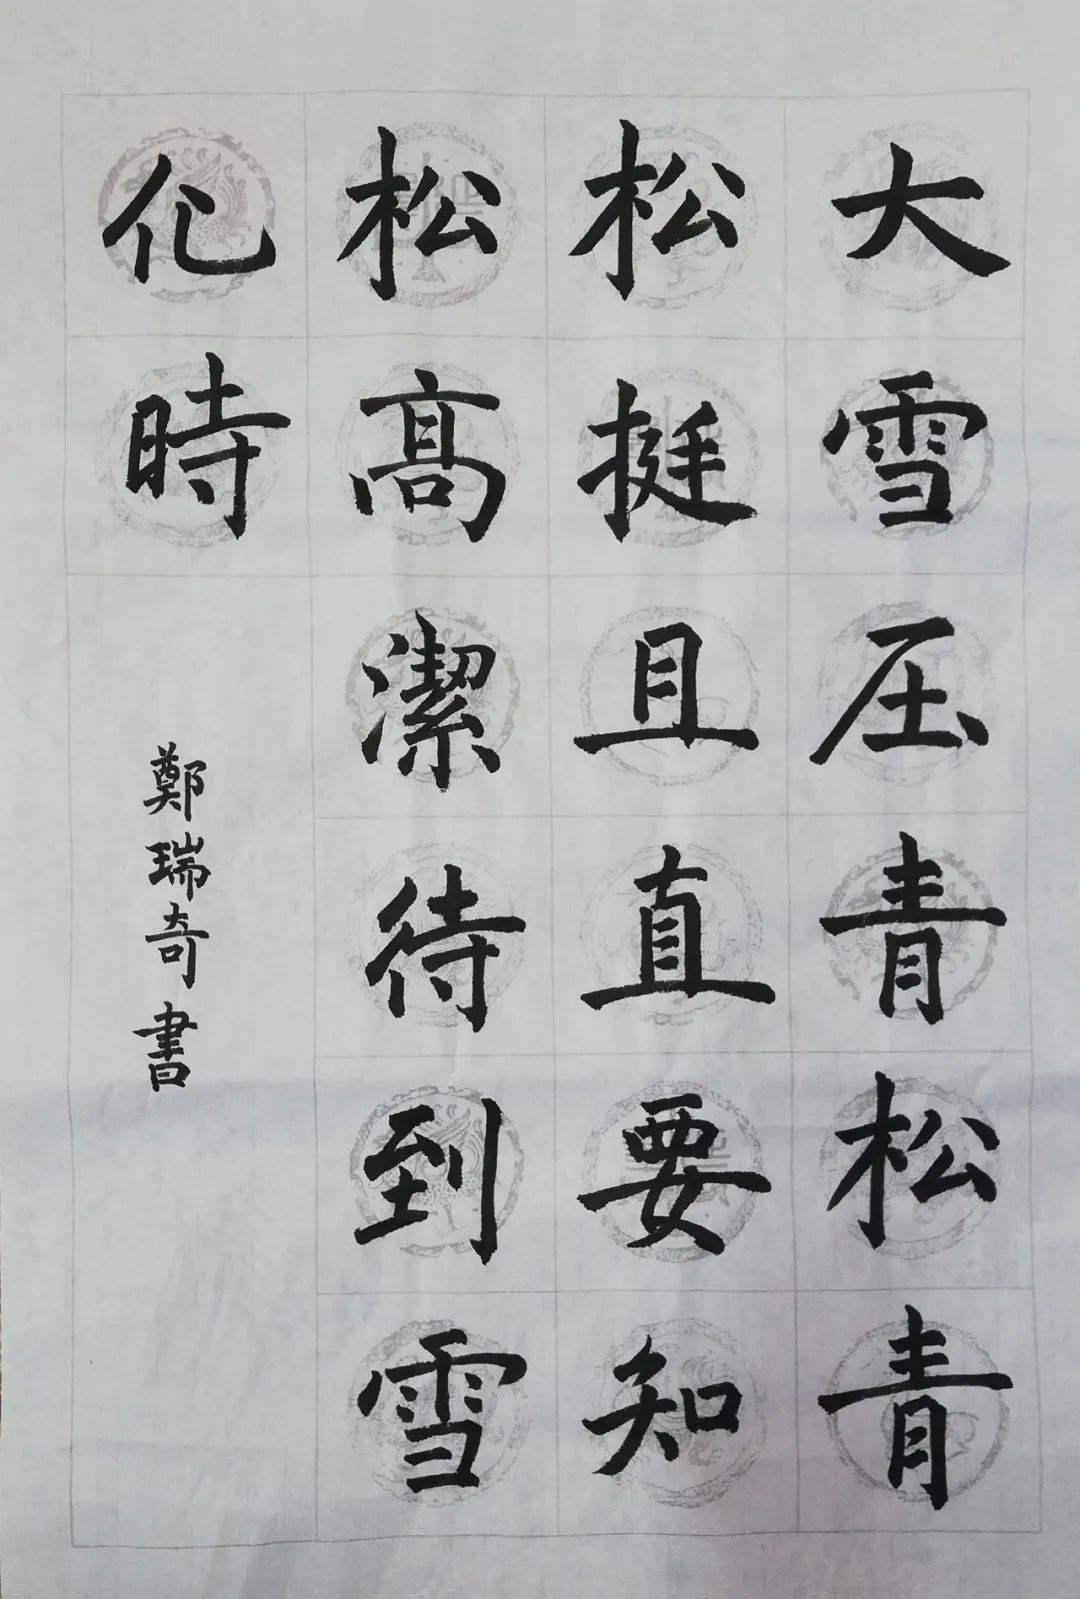 大雪压青松青
松挺且直要知
松高潔待到雪
化時
鄭瑞奇書